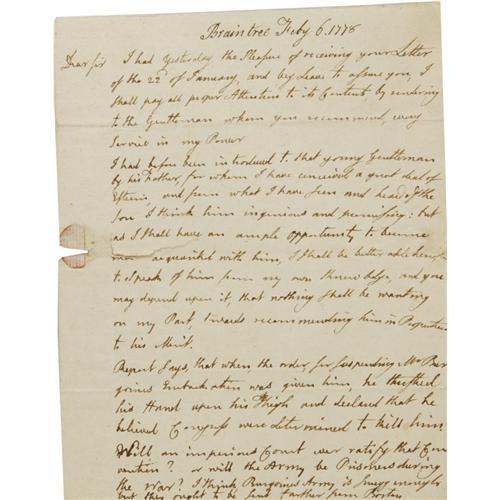 Braintree Feby 6. 1778
Dear Sir
I had Yesterday the Pleasure of receiving your Letter
of the 22d of January, and beg Leave to assure you, I
shall pay all proper Attention to its Contents, by rendering
to the Gentleman whom you recommend, every
Service in my Power
I had before been introduced to that young Gentleman
by his Father, for whom I have conceived a great deal of
Esteem, and from what I have seen and heard of the
Son I think him ingenious and promising: but
as I shall have an ample opportunity to become
more acquainted with him, I shall be better able
to Speak of him from my own Knowledge, and you
may depend upon it, that nothing shall be wanting
on my Part, towards recommending him in Proportion
to his Merit.
Report Says, that when the order for suspending Mr Bur
goines Embarkation was given him, he
his Hand upon his Thigh and declared that he
believed Congress were determined to kill him.
Will an imperious Court ever ratify that Con
vention? or will the Army be Prisoners during
the War? I think Burgoines Army is snugg enough
but they ought to be sent farther from Boston